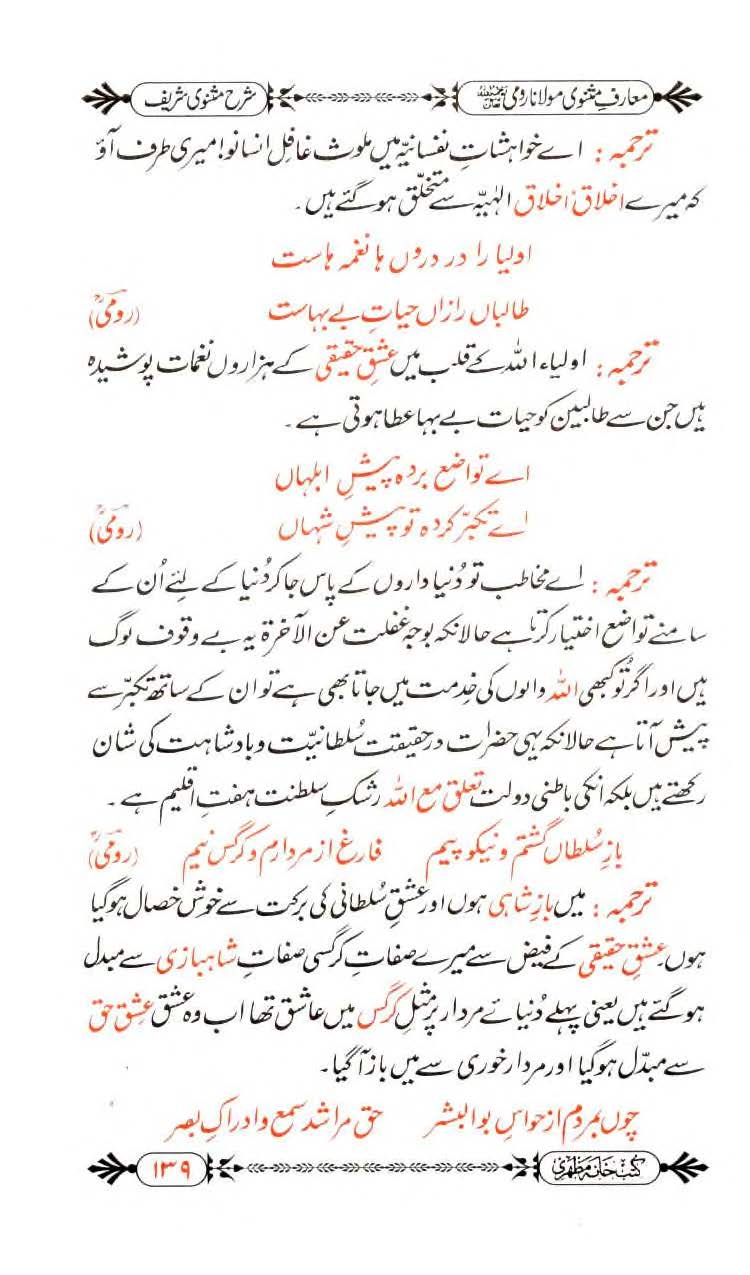 معارفِ مثنوی مولانا رومی رحمۃ اللہ علیہ شرح مثنوی شریف
ترجمہ : اے خواہشاتِ نفسانیّہ میں ملوث غافل انسانو! میری طرف آؤ
کہ میرے اخلاق اخلاقِ الٰہیّہ سے متخلّق ہوگئے ہیں۔
اولیا را در دروں ہا نغمہ ہاست
طالباں رازاں حیاتِ بے بہاست (رومیؒ)
ترجمہ : اولیاء اللہ کے قلب میں عشقِ حقیقی کے ہزاروں نغمات پوشیدہ
ہیں جن سے طالبین کو حیات بے بہا عطا ہوتی ہے۔
اے تواضع بردہ پیشِ ابلہاں
اے تکبّر کردہ تو پیشِ شہاں (رومیؒ)
ترجمہ : اے مخاطب تو دُنیا داروں کے پاس جاکر دُنیا کے لئے اُن کے
سامنے تواضع اختیار کرتا ہے حالانکہ بوجہ غفلت عن الآخرۃ یہ بے وقوف لوگ
ہیں اور اگر تُو کبھی اللہ والوں کی خِدمت میں جاتا بھی ہے تو ان کے ساتھ تکبّر سے
پیش آتا ہے حالانکہ یہی حضرات درحقیقت سُلطانیّت و بادشاہت کی شان
رکھتے ہیں بلکہ انکی باطنی دولت تعلق مع اللہ رشکِ سلطنت ہفتِ اقلیم ہے۔
بازِ سُلطاں گشتم و نیکو پیم فارغ از مردارم و کرگس نیم (رومیؒ)
ترجمہ : میں بازِ شاہی ہوں اور عشقِ سُلطانی کی برکت سے خوش خصال ہوگیا
ہوں۔ عشقِ حقیقی کے فیض سے میرے صفاتِ کرگسی صفاتِ شاہبازی سے مبدل
ہوگئے ہیں یعنی پہلے دُنیائے مردار پر مثلِ کرگس میں عاشق تھا اب وہ عشق عشقِ حق
سے مبدّل ہوگیا اور مردار خوری سے میں باز آگیا۔
چوں بمردم از حواسِ بوالبشر حق مرا شد سمع و ادراکِ بصر
کتب خانہ مظہری ۱۳۹